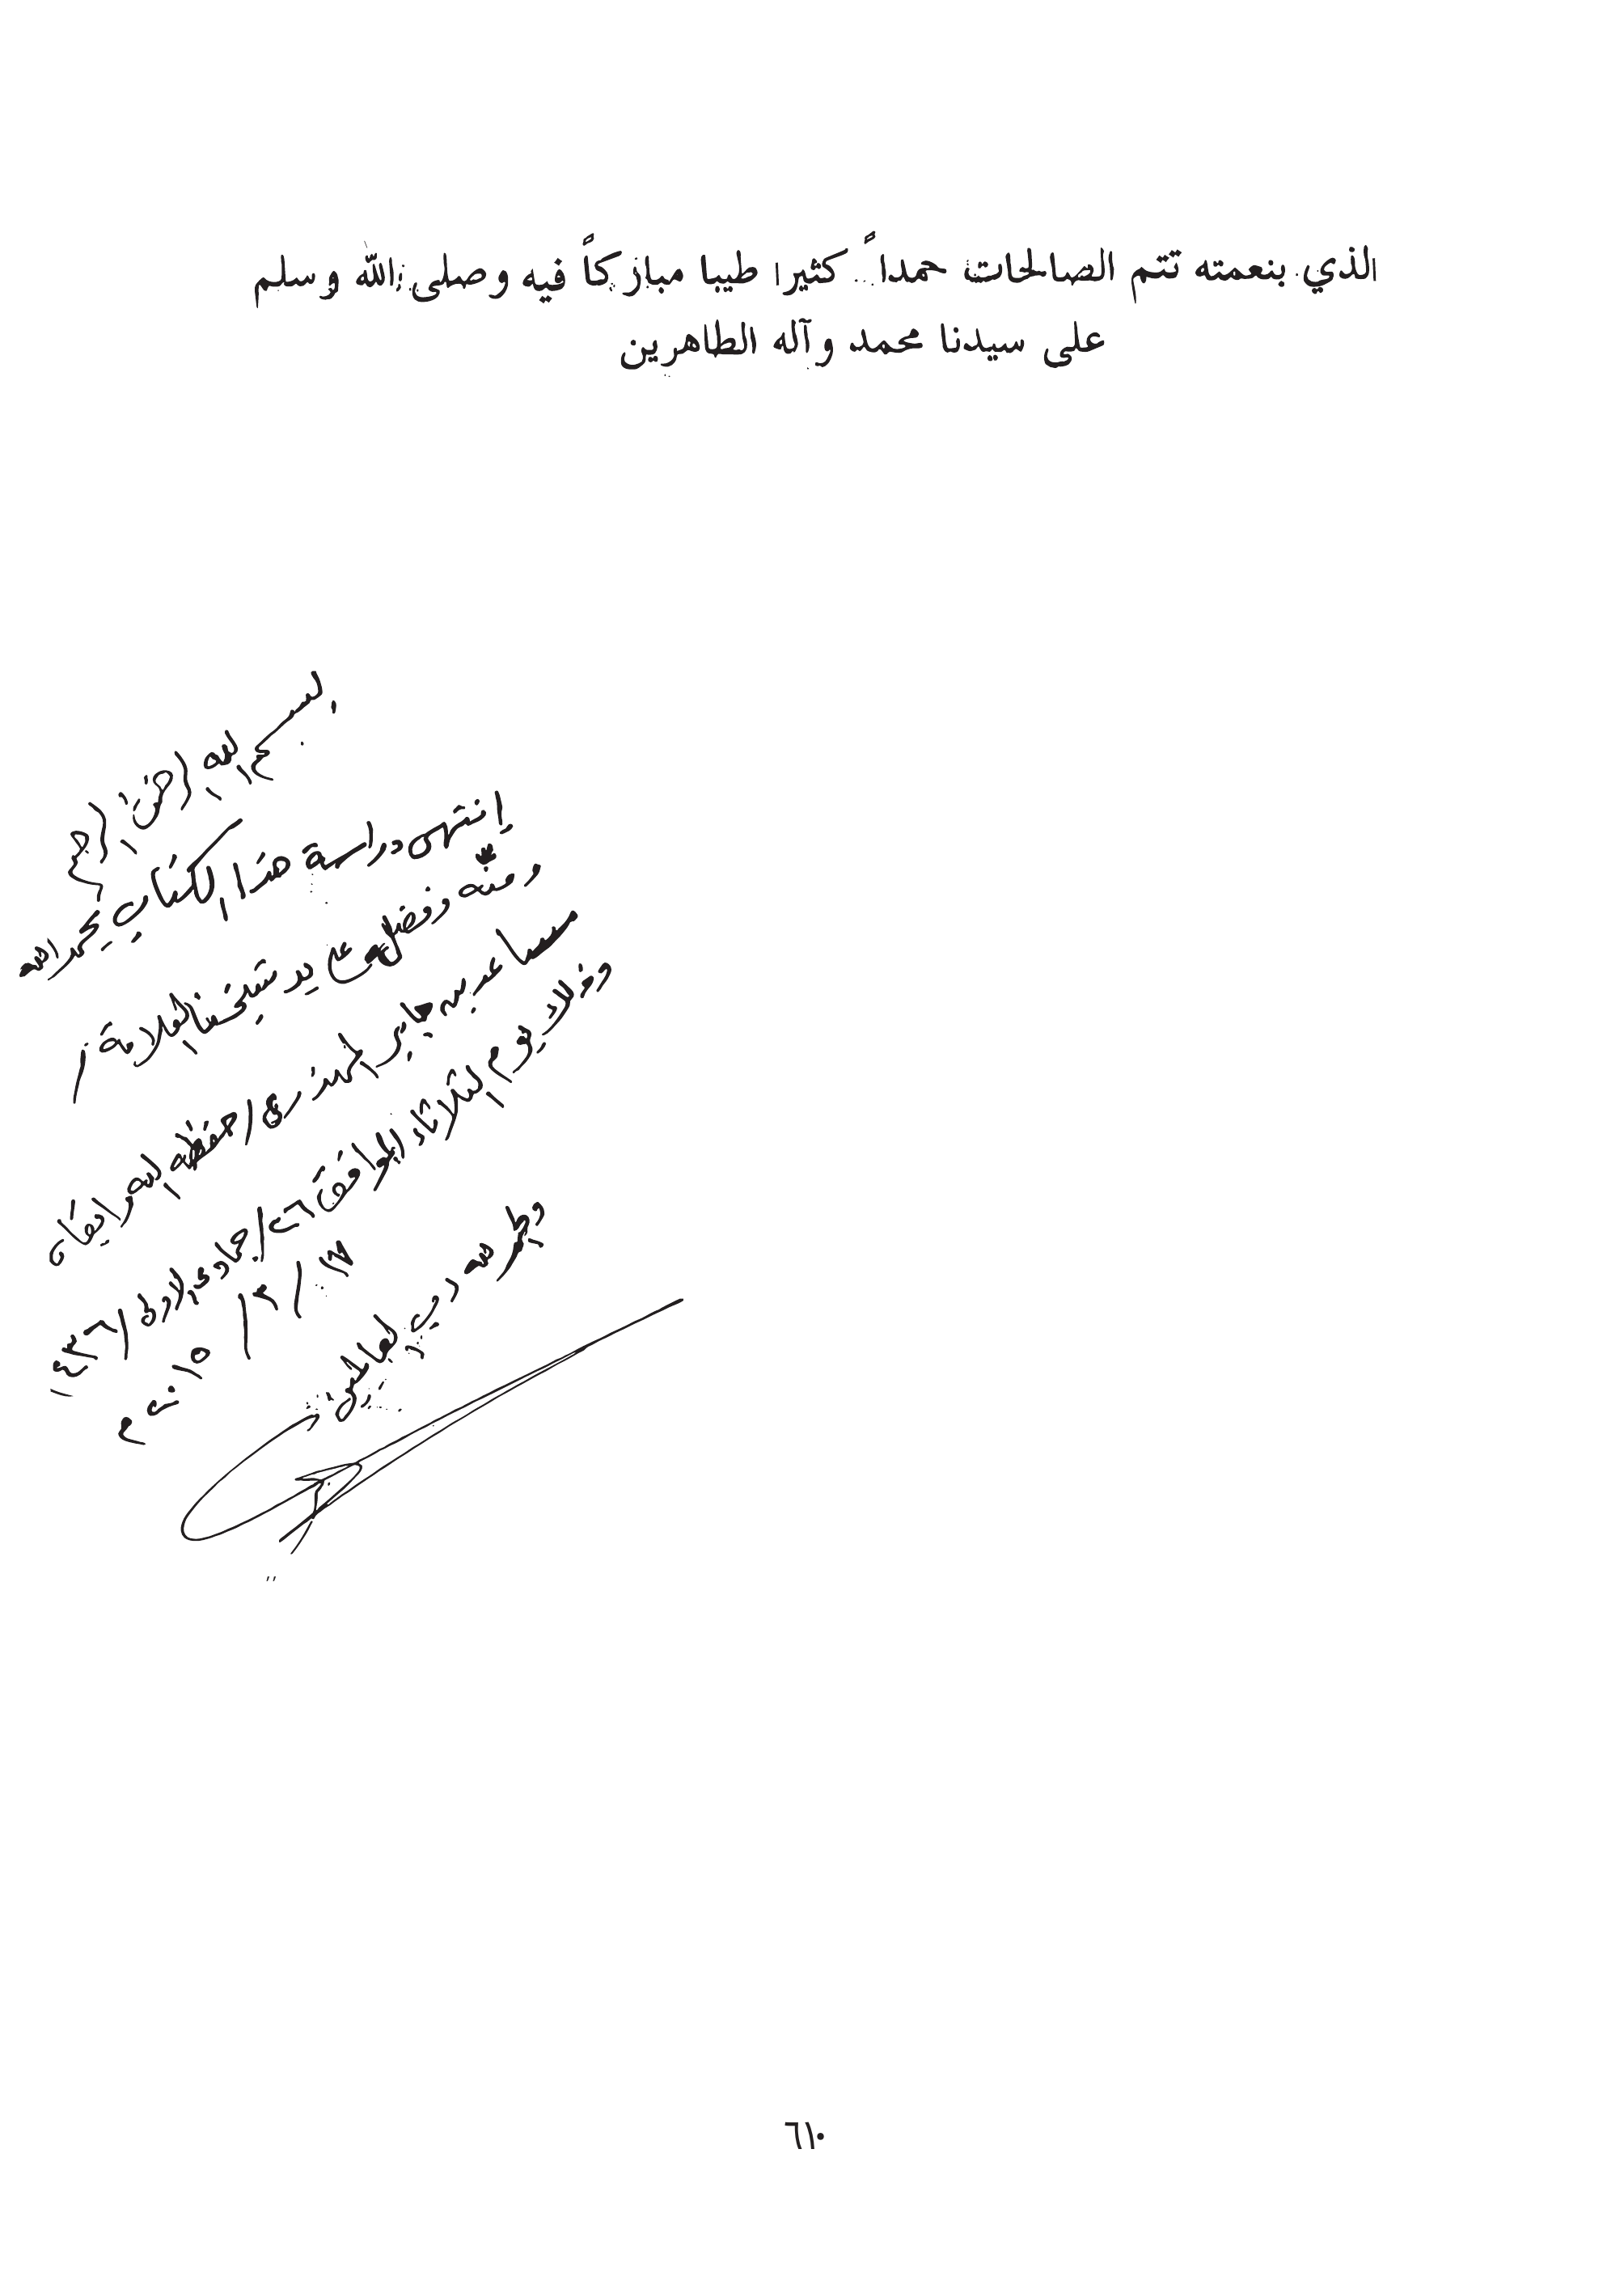 الذي بنعمته تتم الصالحات حمداً كثيرا طيبا مباركاً فيه وصلى الله وسلم
على سيدنا محمد وآله الطاهرين
بسم الله الرحمن الرحيم
إنتهى دراسة هذا الكتاب بحمد الله
ومنّه وفضله على يد شيخنا العلامة /
جابر المنذري / حفظه الله وابقاه
وذلك يوم الثلاثاء الموافق ٢٦ / جمادى الاولى / ١٤٣٦
١٧ / ٣ / ٢٠١٥ م
والحمد لله رب العالمين
٦١٠